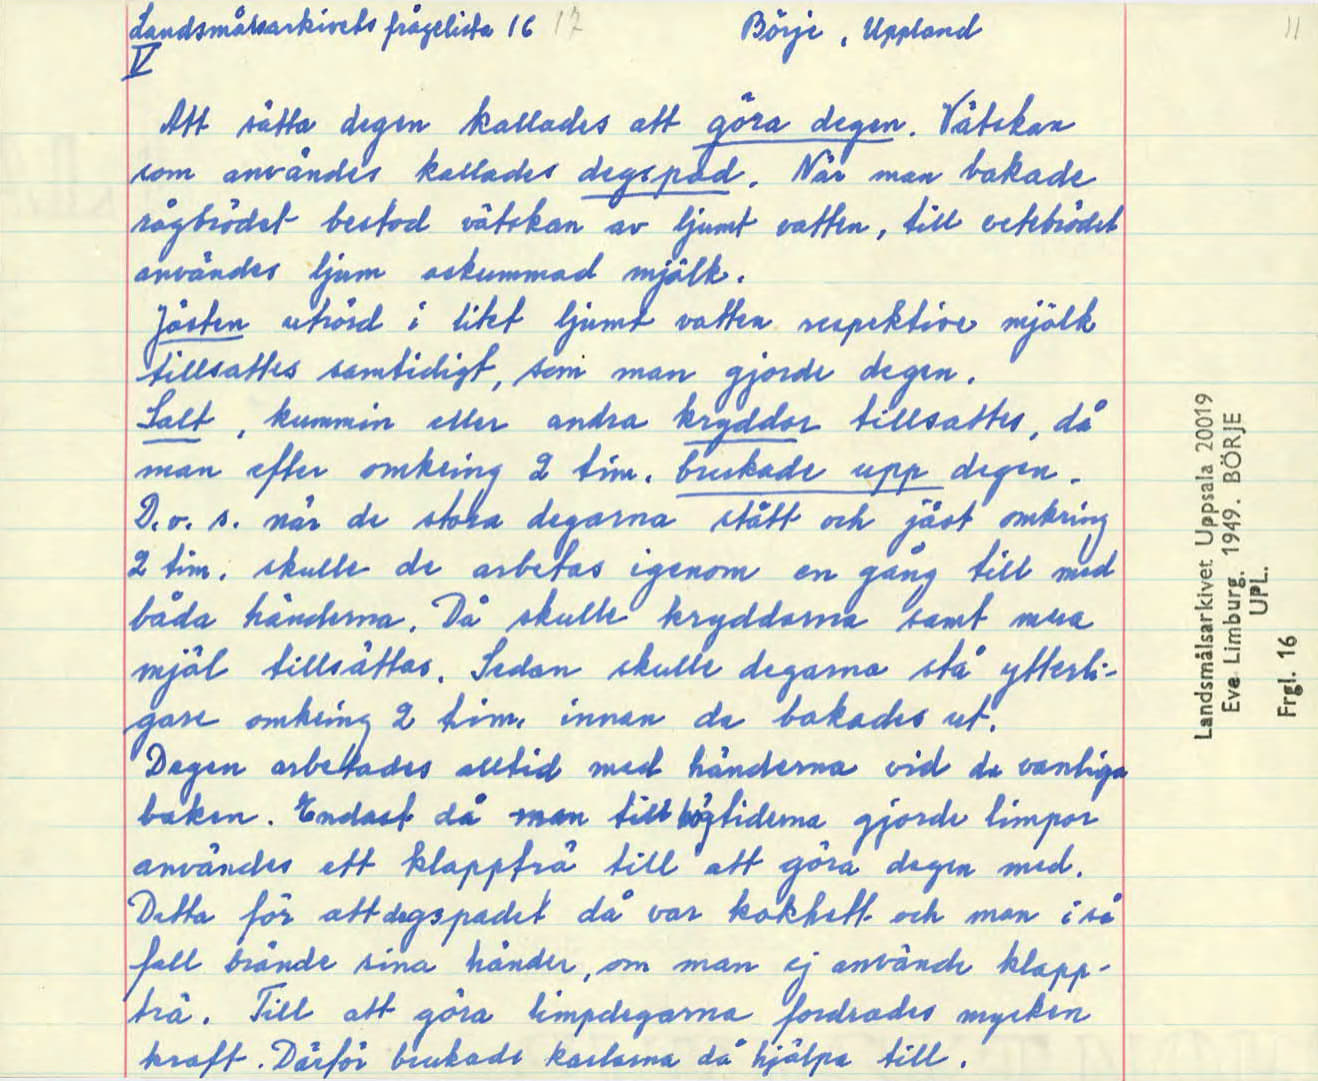 Landsmålsarkivets frågelista 16 17 Börje, Uppland 11
IV
Att sätta degen kallades att göra degen. Vätskan
som användes kallades degspad. När man bakade
rågbrödet bestod vätskan av ljumt vatten, till vetebrödet
användes ljum oskummad mjölk.
Jästen utrörd i litet ljumt vatten respektive mjölk
tillsattes samtidigt, som man gjorde degen.
Salt, kummin eller andra kryddor tillsattes, då
man efter omkring 2 tim. brukade upp degen.
D.v.s. när de stora degarna stått och jäst omkring
2 tim. skulle de arbetas igenom en gång till med
båda händerna. Då skulle kryddorna samt mera
mjöl tillsättas. Sedan skulle degarna stå ytterli-
gare omkring 2 tim. innan de bakades ut.
Degen arbetades alltid med händerna vid de vanliga
baken. Endast då man till högtiderna gjorde limpor
användes ett klappträ till att göra degen med.
Detta för att degspadet då var kokhett och man i så
fall brände sina händer, om man ej använde klapp-
trä. Till att göra limpdegarna fordrades mycken
kraft. Därför brukade karlarna då hjälpa till.
Landsmålsarkivet Uppsala 20019
Eva Limburg. 1949. BÖRJE
UPL.
Frgl. 16